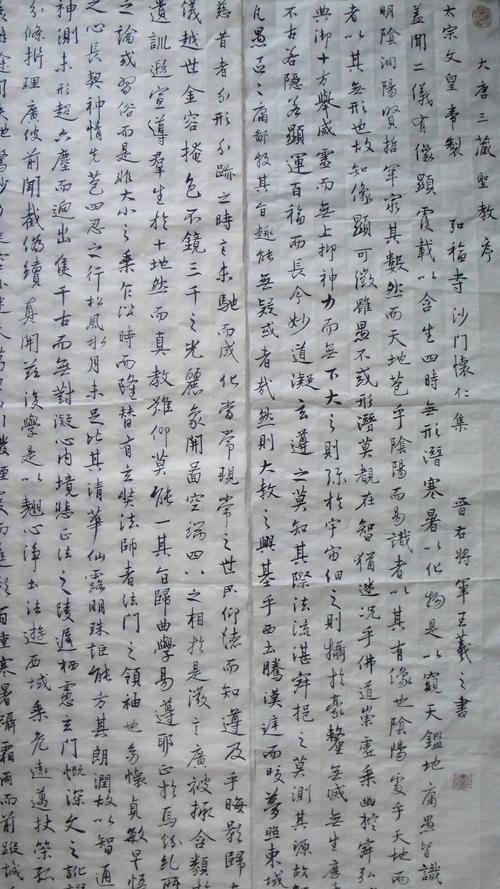 大唐三藏聖教序
太宗文皇帝製 弘福寺沙門懷仁集 晉右將軍王羲之書
蓋聞二儀有像顯覆載以含生四時無形潛寒暑以化物是以窺天鑑地庸愚皆識
明陰洞陽賢哲罕窮其數然而天地苞乎陰陽而易識者以其有像也陰陽處乎天地而
者以其無形也故知像顯可徵雖愚不惑形潛莫覩在智猶迷況乎佛道崇虛乘幽控寂弘
典御十方舉威靈而無上抑神力而無下大之則彌於宇宙細之則攝於豪釐無滅無生歷
不古若隱若顯運百福而長今妙道凝玄遵之莫知其際法流湛寂挹之莫測其源故知
凡愚區區庸鄙投其旨趣能無疑或者哉然則大教之興基乎西土騰漢庭而皎夢照東域
慈昔者分形分跡之時言未馳而成化當常現常之世民仰德而知遵及乎晦影歸
儀越世金容掩色不鏡三千之光麗象開圖空端四八之相於是微言廣被拯含類於
遺訓遐宣導群生於十地然而真教難仰莫能一其旨歸曲學易遵耶正於焉紛糾所
之論或習俗而是非大小之乘乍沿時而隆替有玄奘法師者法門之領袖也幼懷貞敏早悟
之心長契神情先苞四忍之行松風水月未足比其清華仙露明珠詎能方其朗潤故以智通
神測未形超六塵而迥出隻千古而無對凝心內境悲正法之陵遲栖慮玄門慨深文之訛謬
分條析理廣彼前聞截偽續真開茲後學是以翹心淨土法遊西域乘危遠邁杖策孤